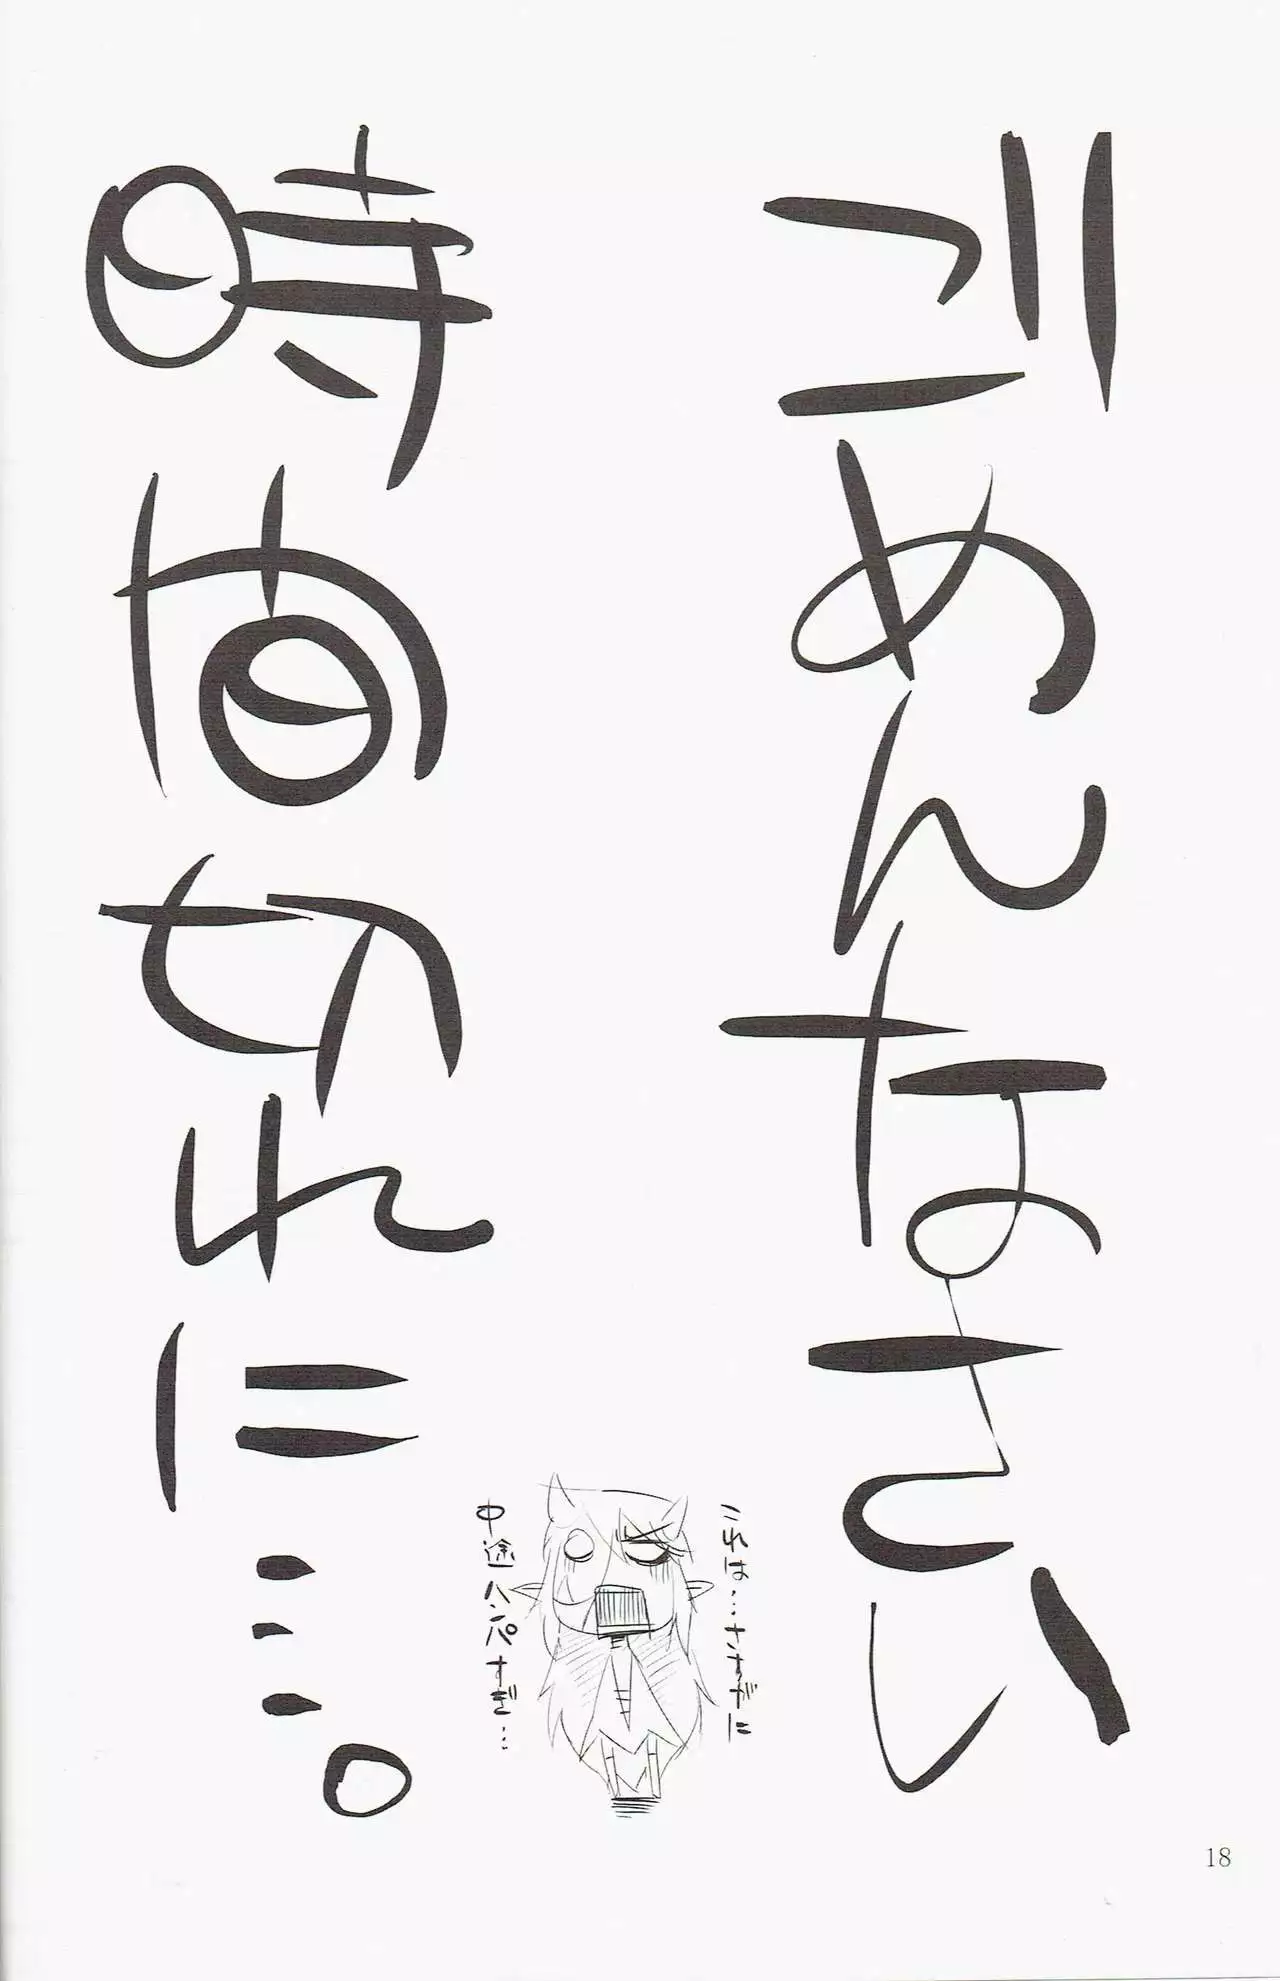 ごめんなさい
時間切れ三…。
これは…さすがに
中途ハンパすぎ…
18